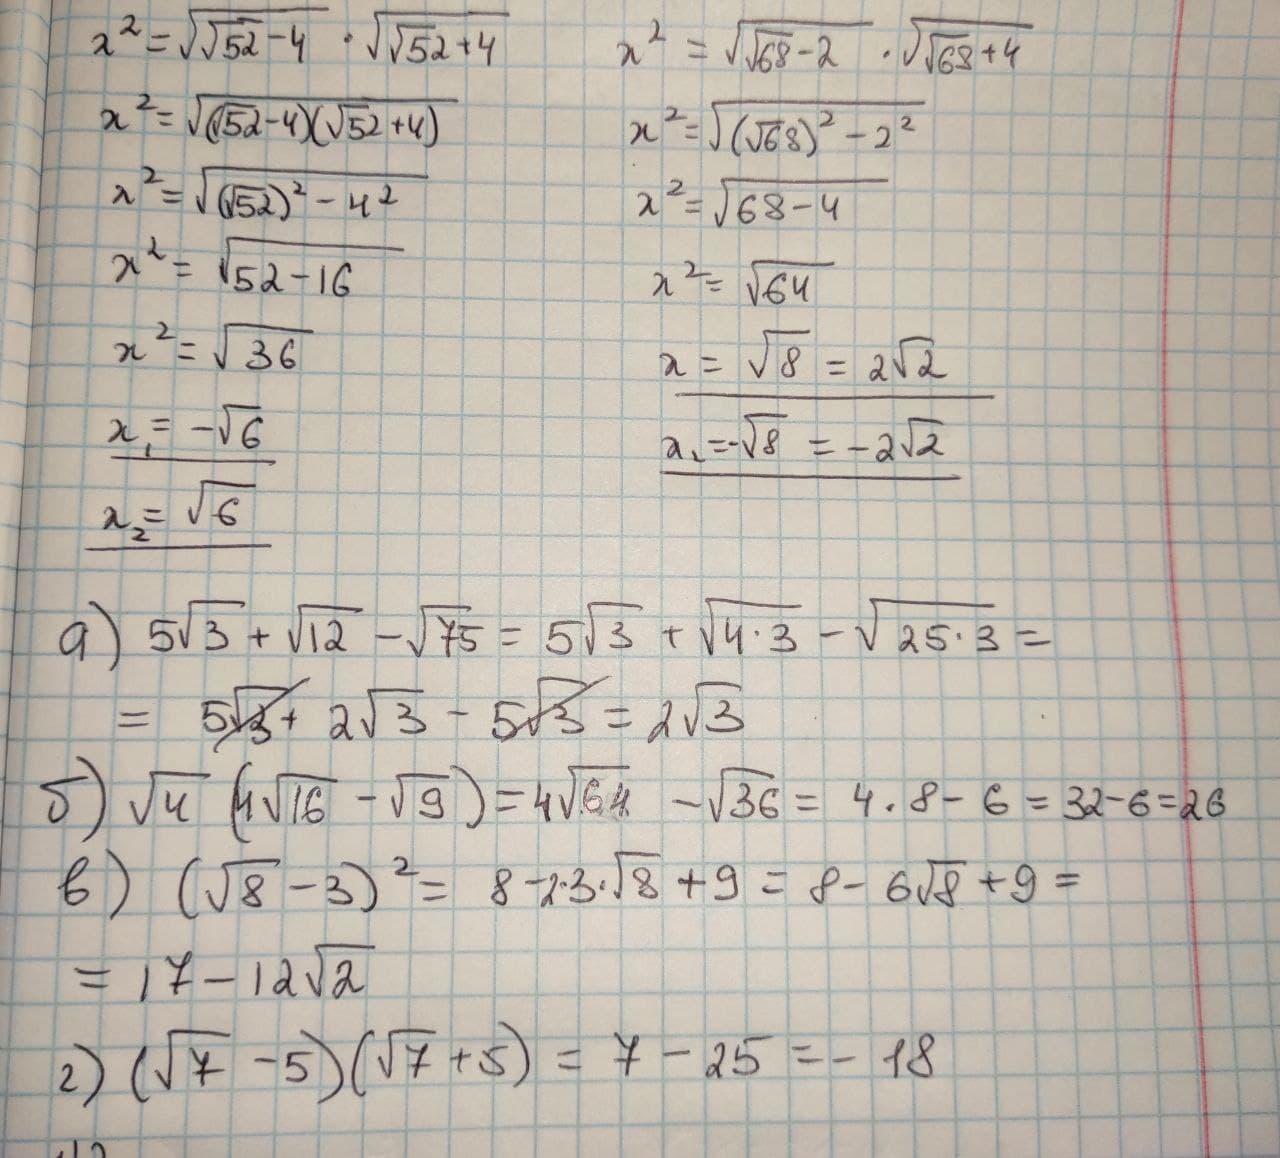 x² = √(√52 - 4) · √(√52 + 4)
x² = √((√52 - 4)(√52 + 4))
x² = √((√52)² - 4²)
x² = √(52 - 16)
x² = √36
x₁ = -√6
x₂ = √6
x² = √(√68 - 2) · √(√68 + 4)
x² = √((√68)² - 2²)
x² = √(68 - 4)
x² = √64
x = √8 = 2√2
x₂ = -√8 = -2√2
а) 5√3 + √12 - √75 = 5√3 + √(4·3) - √(25·3) =
= 5√3 + 2√3 - 5√3 = 2√3
б) √4 (4√16 - √9) = 4√64 - √36 = 4·8 - 6 = 32 - 6 = 26
в) (√8 - 3)² = 8 - 2·3·√8 + 9 = 8 - 6√8 + 9 =
= 17 - 12√2
г) (√7 - 5)(√7 + 5) = 7 - 25 = -18